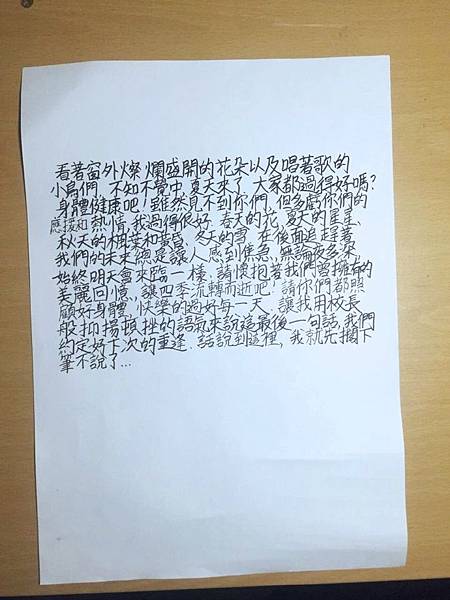 看著窗外燦爛盛開的花朵以及唱著歌的
小鳥們, 不知不覺中, 夏天來了, 大家都過得好嗎?
身體健康吧! 雖然見不到你們, 但多虧你們的
應援和熱情, 我過得很好. 春天的花, 夏天的星星,
秋天的楓葉和黃昏, 冬天的雪, 在後面追趕著
我們的未來總是讓人感到焦急, 無論夜多深,
始終明天會來臨一樣, 請懷抱著我們曾擁有的
美麗回憶, 讓四季流轉而逝吧! 請你們都照
顧好身體, 快樂的過好每一天, 讓我用校長
般抑揚頓挫的語氣來說這最後一句話, 我們
約定好下次的重逢. 話說到這裡, 我就先擱下
筆不說了...